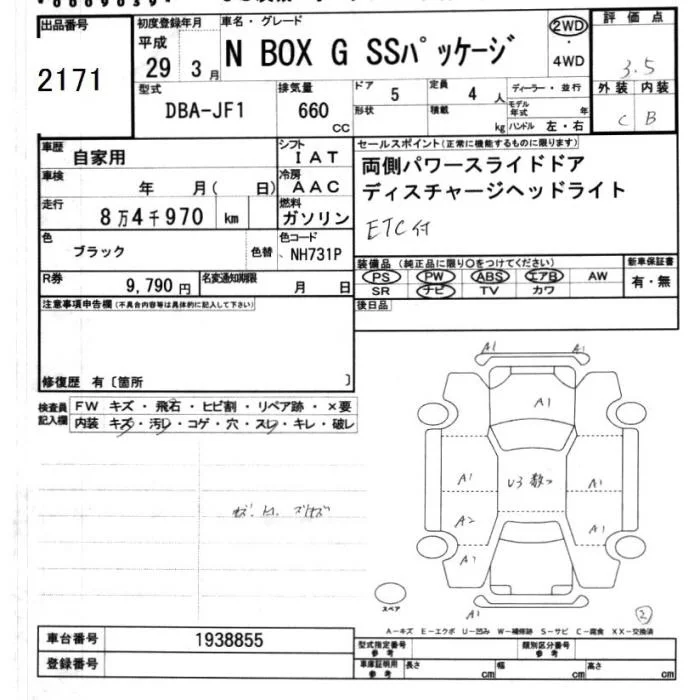 出品番号
2171
初度登録年月
平成
29年 3月
車名・グレード
N BOX G SSパッケージ
2WD
・
4WD
評価点
3.5
型式
DBA-JF1
排気量
660
CC
ドア
5
定員
4人
形状
積載
kg
ディーラー・並行
モデル年式 年
ハンドル 左・右
外装 内装
C B
車歴
自家用
シフト
IAT
車検
年 月( 日)
冷房
AAC
走行
8万4千970 km
燃料
ガソリン
色
ブラック
色替
色コード
NH731P
R券
9,790円
名変通知期限
月 日
セールスポイント(正常に機能するものに限ります)
両側パワースライドドア
ディスチャージヘッドライト
ETC付
装備品(純正品に限り○をつけてください)
PS PW ABS エアB AW
SR ナビ TV カワ
新車保証書
有・無
後日品
注意事項申告欄(不具合内容等は具体的に記入して下さい)
修復歴 有〔箇所 〕
検査員記入欄
FW キズ・飛石・ヒビ割・リペア跡・×要
内装 キズ・汚レ・コゲ・穴・スレ・キレ・破レ
A1 A1
A1
A1 U3 数つ A1
A2 A1
A1
スペア
②
A-キズ E-エクボ U-凹み W-補修跡 S-サビ C-腐食 XX-交換済
車台番号
1938855
登録番号
型式指定番号
参考
類別区分番号
参考
車庫証明用
参考
長さ cm 幅 cm 高さ cm